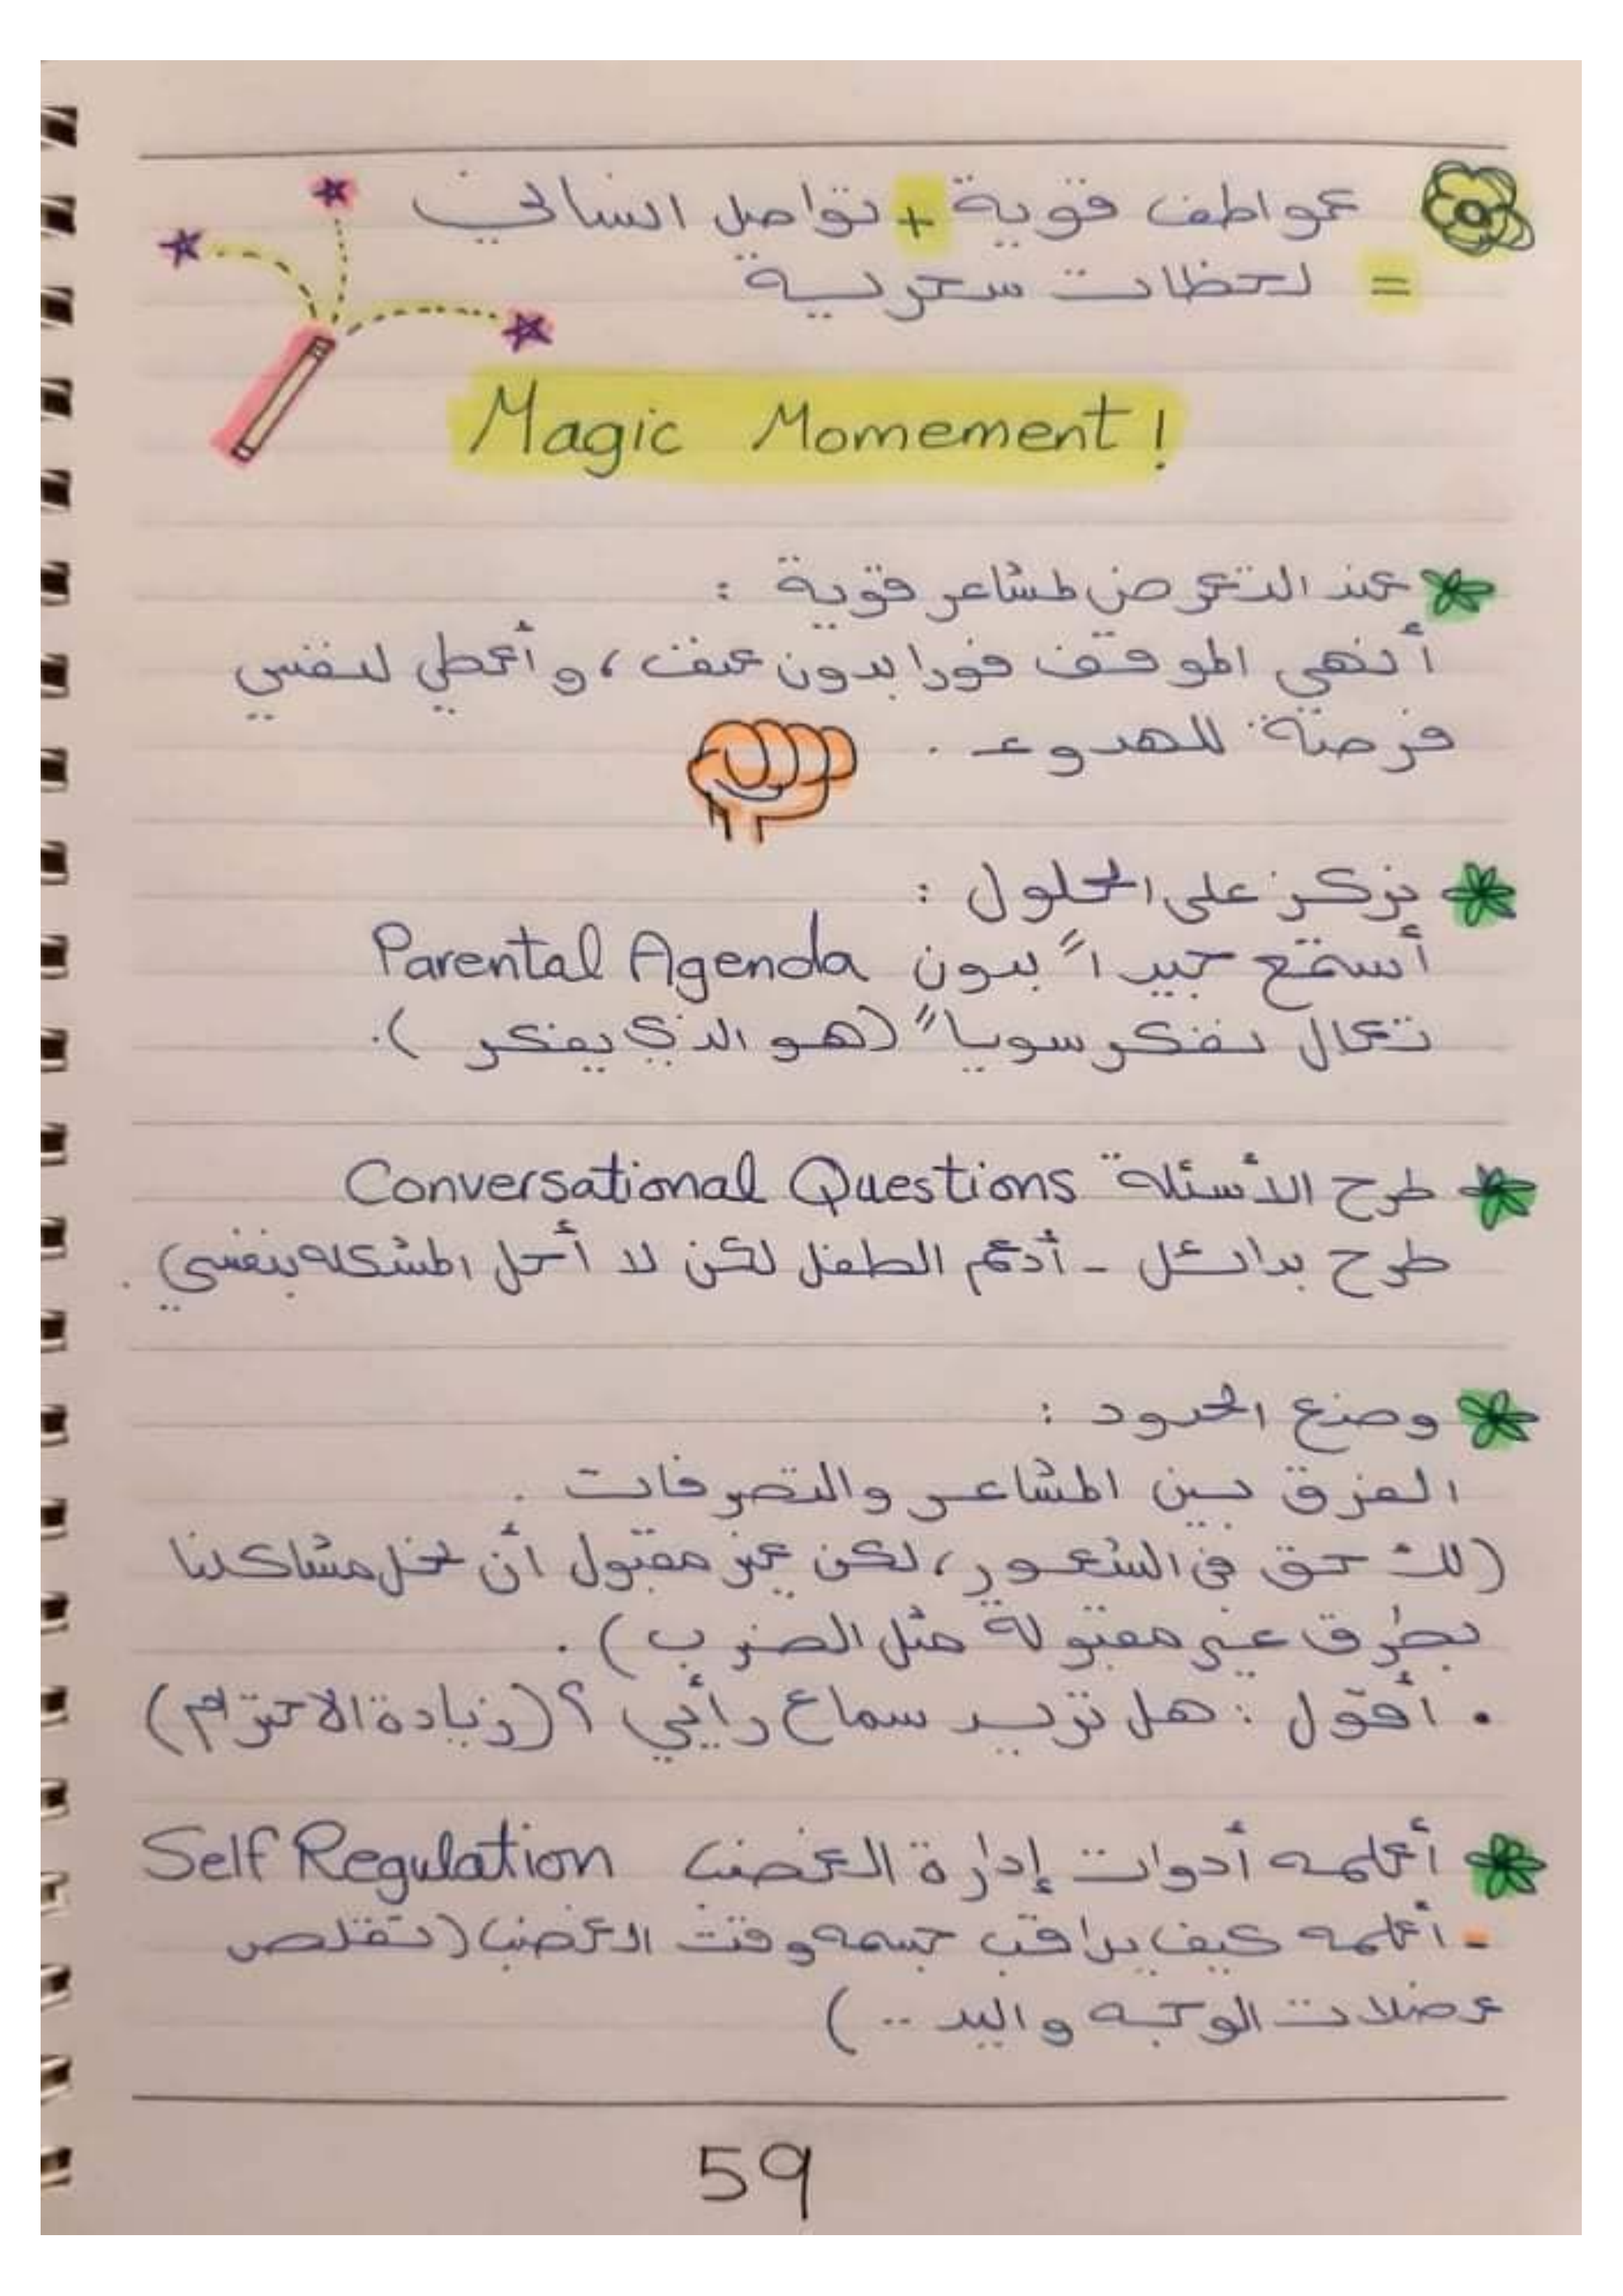 عواطف قوية + تواصل انساني
= لحظات سحرية
Magic Momement!
عند التعرض لمشاعر قوية :
أنهي الموقف فورا بدون عنف، وأعطي لنفسي
فرصة للهدوء .
نركز على الحلول :
أستمع جيداً بدون Parental Agenda
تعال نفكر سوياً (هو الذي يفكر ).
طرح الأسئلة Conversational Questions
طرح بدائل - أدعم الطفل لكن لا أحل المشكلة بنفسي .
وضع الحدود :
الفرق بين المشاعر والتصرفات .
(لك حق في الشعور، لكن غير مقبول أن نحل مشاكلنا
بطرق غير مقبولة مثل الضرب ) .
. أقول : هل تريد سماع رأيي ؟ (زيادة الاحترام)
أعلمه أدوات إدارة الغضب Self Regulation
- أعلمه كيف يراقب جسمه وقت الغضب (تقلص
عضلات الوجه واليد .. )
59